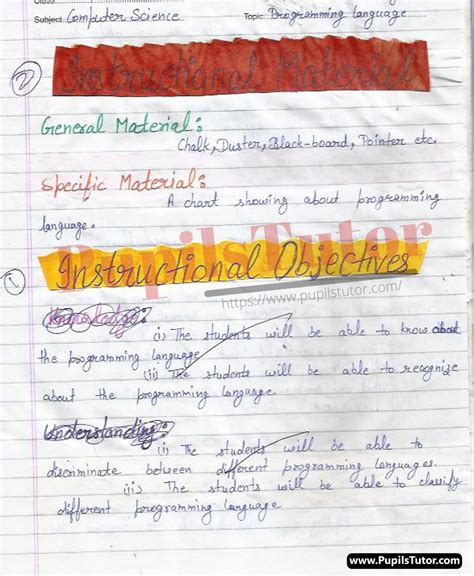 Subject Computer Science Topic Programming language
② Instructional Material
General Material:
Chalk, Duster, Black-board, Pointer etc.
Specific Material:
A chart showing about programming
language.
PupilsTutor
① Instructional Objectives
https://www.pupilstutor.com/
Knowledge:
(i) The students will be able to know about
the programming language
(ii) The students will be able to recognize
about the programming language.
Understanding:
(i) The students will be able to
discriminate between different programming languages.
(ii) The students will be able to classify
different programming language
www.PupilsTutor.com